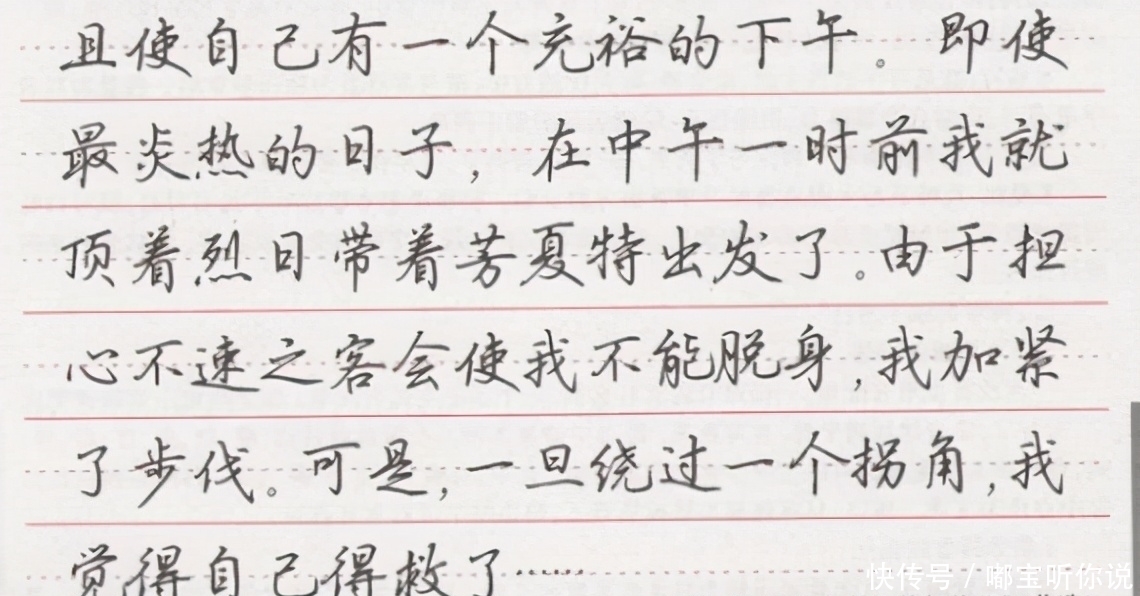 且使自己有一个充裕的下午。即使
最炎热的日子，在中午一时前我就
顶着烈日带着芳夏特出发了。由于担
心不速之客会使我不能脱身，我加紧
了步伐。可是，一旦绕过一个拐角，我
觉得自己得救了……
快传号／嘟宝听你说